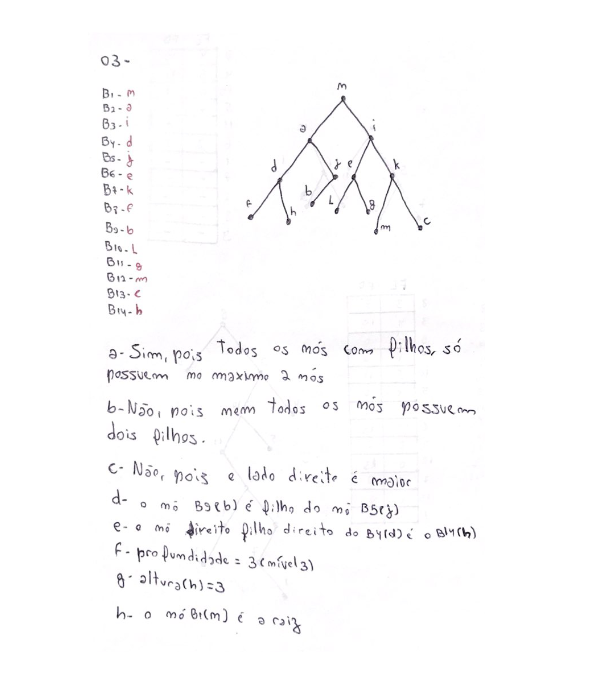 03-
B1- m
B2- a
B3- i
B4- d
B5- j
B6- e
B7- k
B8- f
B9- b
B10- L
B11- g
B12- m
B13- c
B14- h
m
a
i
d
j
e
k
f
h
b
L
g
m
c
a- Sim, pois Todos os nós com filhos, só
possuem no maximo 2 nós
b- Não, pois nem todos os nós possuem
dois filhos.
c- Não, pois o lado direito é maior
d- o nó B9(b) é filho do nó B5(j)
e- o nó direito filho direito do B4(d) é o B14(h)
f- profundidade = 3(nível 3)
g- altura(h)=3
h- o nó B1(m) é a raiz